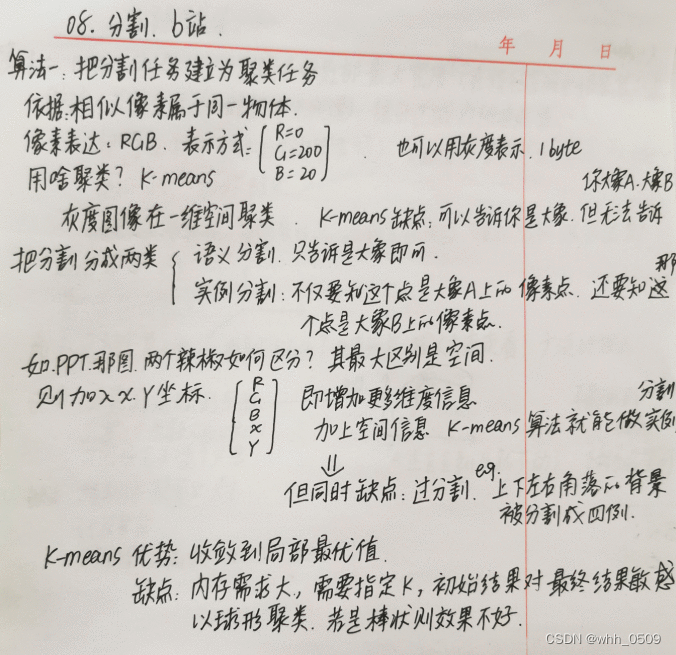 08. 分割. b站.
年 月 日
算法一: 把分割任务建立为聚类任务
依据: 相似像素属于同一物体.
像素表达: RGB. 表示方式: [R=0 G=200 B=20] . 也可以用灰度表示. 1byte
用啥聚类? K-means
你大象A.大象B
灰度图像在一维空间聚类. K-means缺点: 可以告诉你是大象. 但无法告诉
把分割分成两类 { 语义分割. 只告诉是大象即可.
那
实例分割: 不仅要知这个点是大象A上的像素点. 还要知这
个点是大象B上的像素点.
如.PPT.那图.两个辣椒如何区分? 其最大区别是空间.
则加入x.Y坐标. [R G B x Y] 即增加更多维度信息
分割
加上空间信息 K-means算法就能做实例
⇓
但同时缺点: 过分割. e.g. 上下左右角落的背景
被分割成四例.
K-means 优势: 收敛到局部最优值.
缺点: 内存需求大, 需要指定K, 初始结果对最终结果敏感
以球形聚类. 若是棒状则效果不好.
CSDN @whh_0509